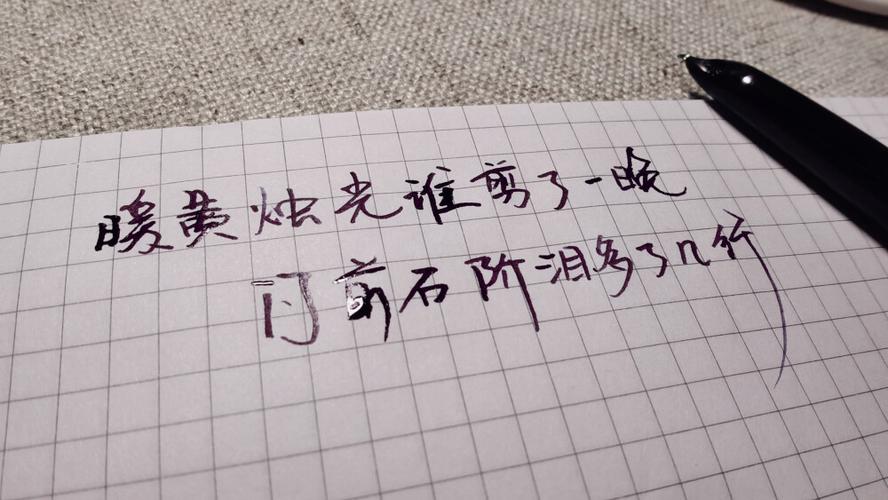 暖黄烛光谁剪了一晚
门前石阶泪多了几行